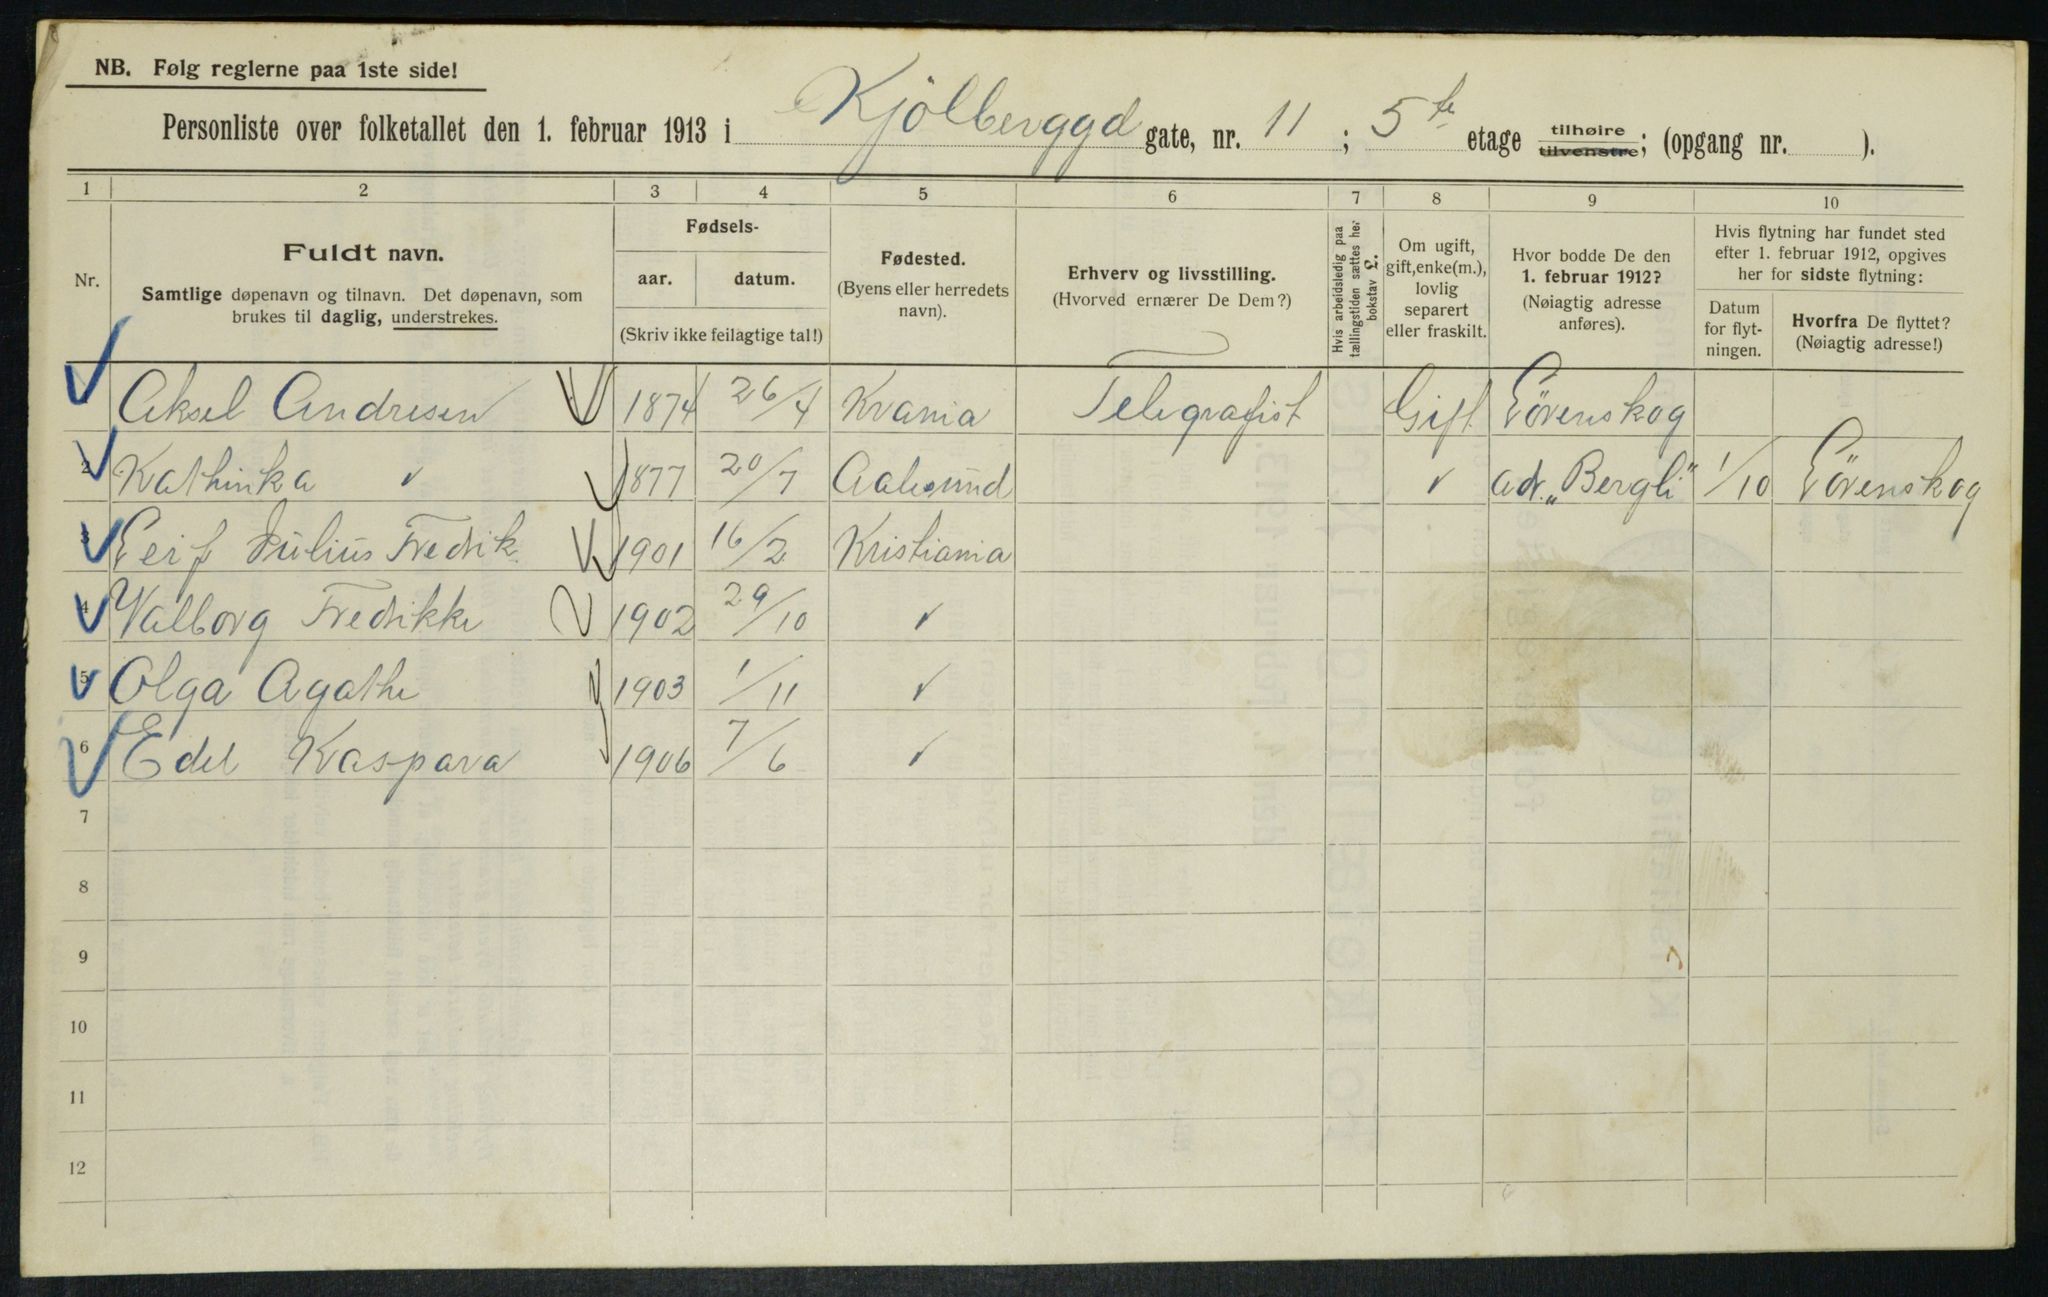 NB. Følg reglerne paa 1ste side!
Personliste over folketallet den 1. februar 1913 i Kjölberggd gate, nr. 11 ; 5te etage tilhøire tilvenstre; (opgang nr. ).
1 2 3 4 5 6 7 8 9 10
Nr.
Fuldt navn.
Samtlige døpenavn og tilnavn. Det døpenavn, som
brukes til daglig, understrekes.
Fødsels-
aar. datum.
(Skriv ikke feilagtige tal!)
Fødested.
(Byens eller herredets
navn).
Erhverv og livsstilling.
(Hvorved ernærer De Dem?)
Hvis arbeidsledig paa
tællingstiden sættes her
bokstav L.
Om ugift,
gift, enke(m.),
lovlig
separert
eller fraskilt.
Hvor bodde De den
1. februar 1912?
(Nøiagtig adresse
anføres).
Hvis flytning har fundet sted
efter 1. februar 1912, opgives
her for sidste flytning:
Datum
for flyt-
ningen.
Hvorfra De flyttet?
(Nøiagtig adresse!)
Aksel Andresen 1874 26/4 Krania Telegrafist Gift Lörenskog
2 Kathinka 1877 20/7 Aalesund adr. „Bergli" 1/10 Lörenskog
3 Leif Julius Fredrik 1901 16/2 Kristiania
4 Valborg Fredrikke 1902 29/10
5 Olga Agathe 1903 1/11
6 Edel Kaspara 1906 7/6
7
8
9
10
11
12